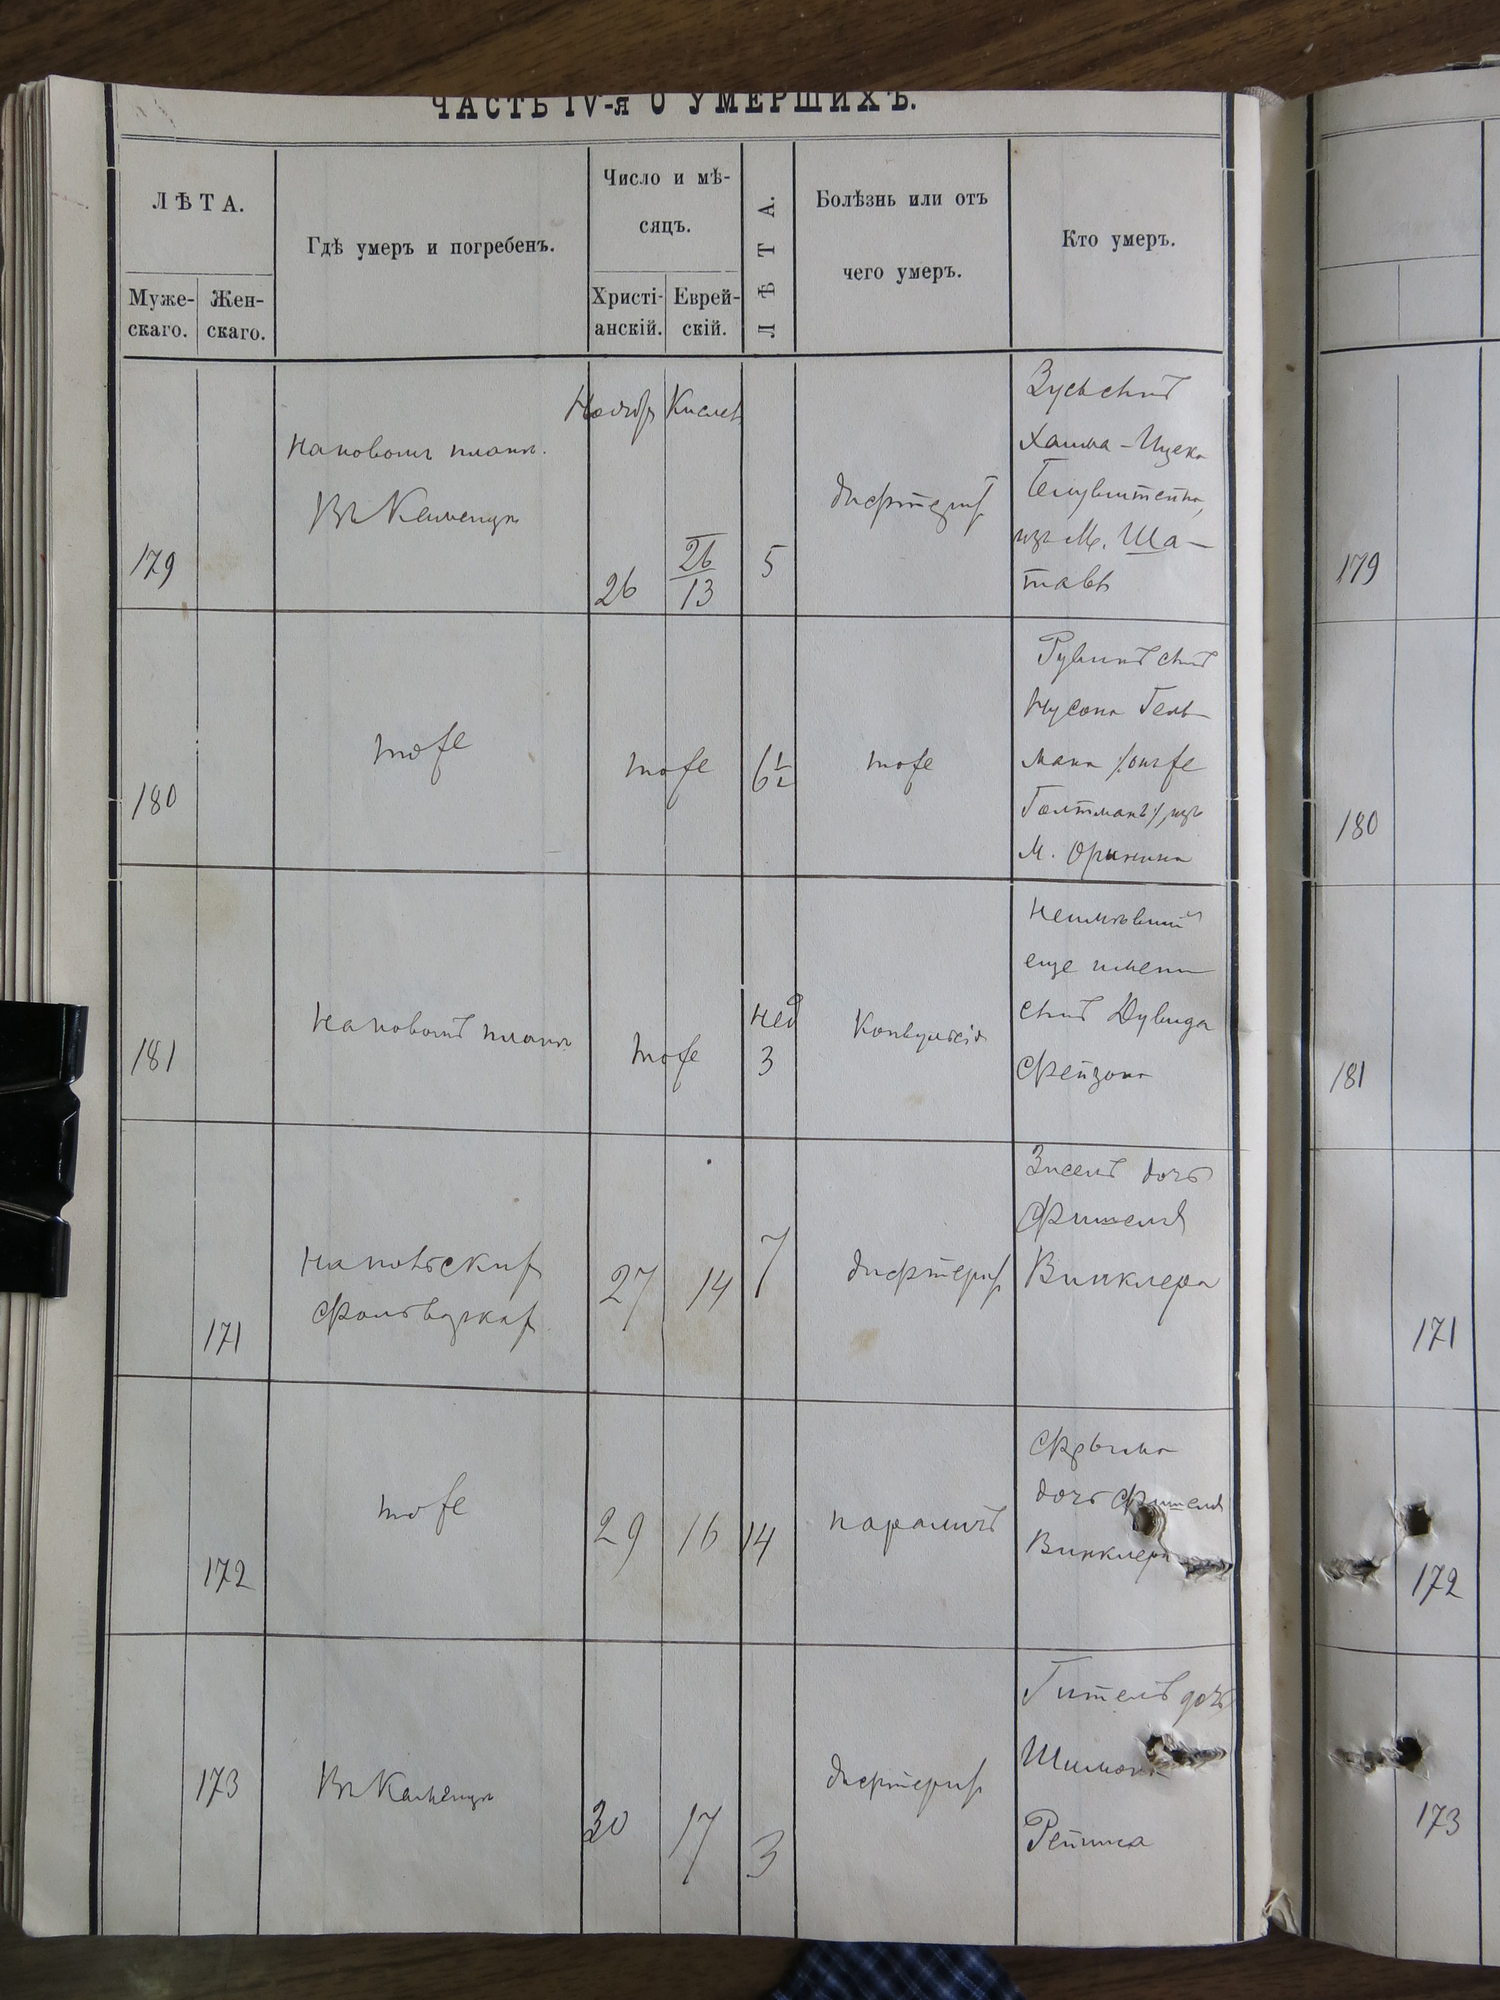 ЧАСТЬ IV-я О УМЕРШИХЪ.
ЛѢТА.
Муже-
скаго.
Жен-
скаго.
Гдѣ умеръ и погребенъ.
Число и мѣ-
сяцъ.
Христі-
анскій.
Еврей-
скій.
ЛѢТА.
Болѣзнь или отъ
чего умеръ.
Кто умеръ.
179
на новомъ планѣ.
Въ Каменцѣ
Ноябр
26
Кислев
26
13
5
дифтерит
Зусь сынъ
Хаима-Ицека
из М. Ша-
тавъ
179
180
тоже
тоже
6 1/2
тоже
Рувинъ сынъ
Нусона Гель-
мана /:онже
Голтманъ/, изъ
М. Оринина
180
181
на новомъ планѣ
тоже
нед
3
Конвульсія
Неимѣвший
еще имени
сынъ Дувида
Фейзона
181
171
фольварках
27
14
7
дифтерит
Зисель дочь
Фишеля
Винклера
171
172
тоже
29
16
14
параличъ
дочь Фишеля
Винклера
172
173
Въ Каменцѣ
30
17
3
дифтерит
Гитель дочь
Шимона
173